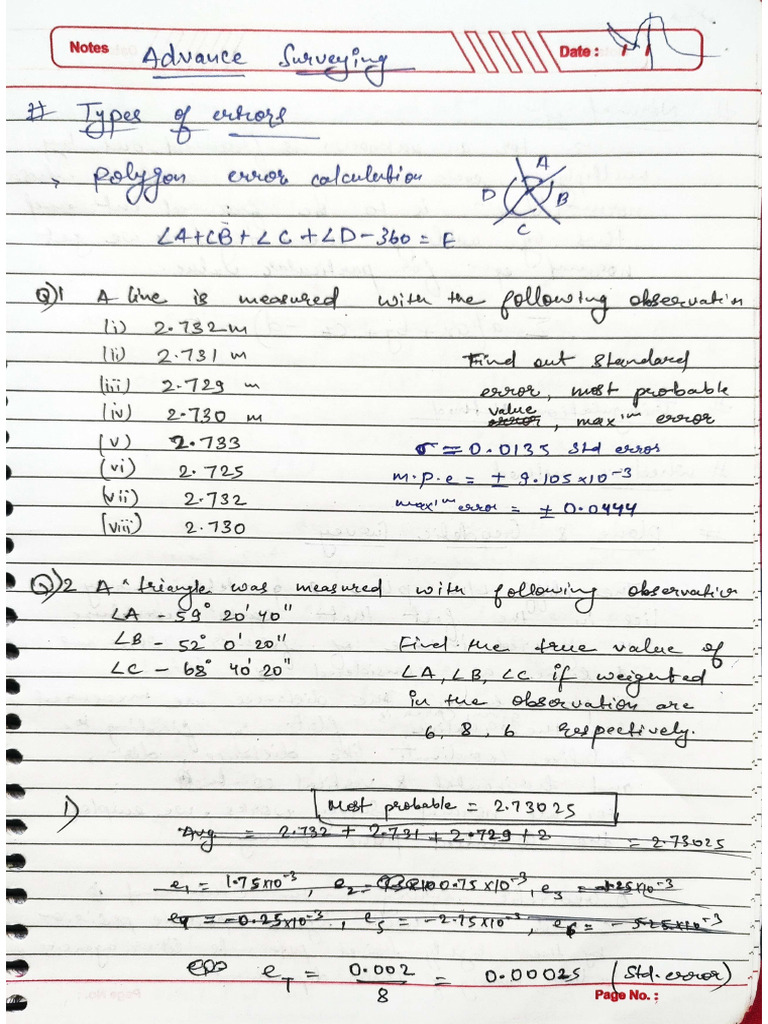 Notes Advance Surveying Date :
Types of errors
polygon error calculation
A
D B
C
∠A+∠B+∠C+∠D-360 = E
Q)1 A line is measured with the following observation
(i) 2.732m
(ii) 2.731 m
(iii) 2.729 m
(iv) 2.730 m
(v) 2.733
(vi) 2.725
(vii) 2.732
(viii) 2.730
Find out standard
error, most probable
value
error, max'm error
σ = 0.0135 Std error
m.p.e = ± 9.105x10⁻³
max'm error = ± 0.0444
Q)2 A triangle was measured with following observation
∠A - 59° 20' 40"
∠B - 52° 0' 20"
∠C - 68° 40' 20"
Find the true value of
∠A, ∠B, ∠C if weighted
in the observation are
6, 8, 6 respectively.
1) Most probable = 2.73025
Avg = 2.732 + 2.731 + 2.729 + 2 = 2.73025
e₁ = 1.75x10⁻³, e₂ = 0.75x10⁻³, e₃ = -1.25x10⁻³
e4 = -0.25x10⁻³, e₅ = -2.75x10⁻³, e₆ = -5.25x10⁻³
e_T = 0.002/8 = 0.00025 (Std. error)
Page No. :